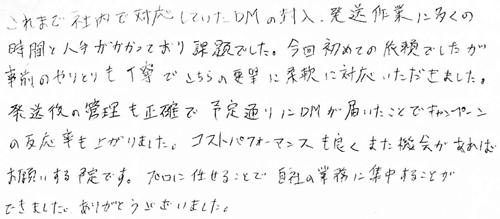 これまで社内で対応していたDMの封入、発送作業に多くの
時間と人手がかかっており課題でした。今回初めての依頼でしたが
事前のやりとりも丁寧でこちらの要望に柔軟に対応いただきました。
発送後の管理も正確で予定通りにDMが届いたことでキャンペーン
の反応率も上がりました。コストパフォーマンスも良くまた機会があれば
お願いする予定です。プロに任せることで自社の業務に集中することが
できました。ありがとうございました。